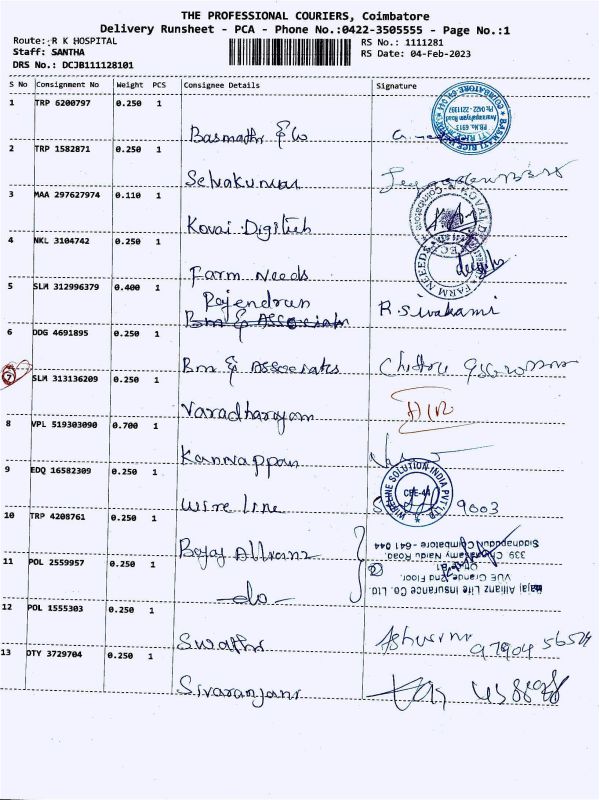 THE PROFESSIONAL COURIERS, Coimbatore
Delivery Runsheet - PCA - Phone No.:0422-3505555 - Page No.:1
Route: R K HOSPITAL
Staff: SANTHA
DRS No.: DCJB111128101
RS No.: 1111281
RS Date: 04-Feb-2023
S No Consignment No Weight PCS Consignee Details Signature
1 TRP 6200797 0.250 1
Basmathi & Co
2 TRP 1582871 0.250 1
Selvakumar
3 MAA 297627974 0.110 1
Kovai Digitech
4 NKL 3104742 0.250 1
Farm Needs
5 SLM 312996379 0.400 1
Rajendran R. Sivakami
Bm & Associats
6 DDG 4691895 0.250 1
Bm & Associates
7 SLM 313136209 0.250 1
Varadharajan
8 VPL 519303090 0.700 1
Kannappan
9 EDQ 16582309 0.250 1
Wire line 9003
WIRELINE SOLUTION INDIA PVT LTD
CBE-44
10 TRP 4208761 0.250 1
Bajaj Allianz
11 POL 2559957 0.250 1
-do-
Bajaj Allianz Life Insurance Co. LTD
VUE Grande 2nd Floor,
339
Naidu Road,
Coimbatore - 641 044
FARM NEEDS
12 POL 1555303 0.250 1
Swathi
97904 56524
13 DTY 3729704 0.250 1
Sivaranjani